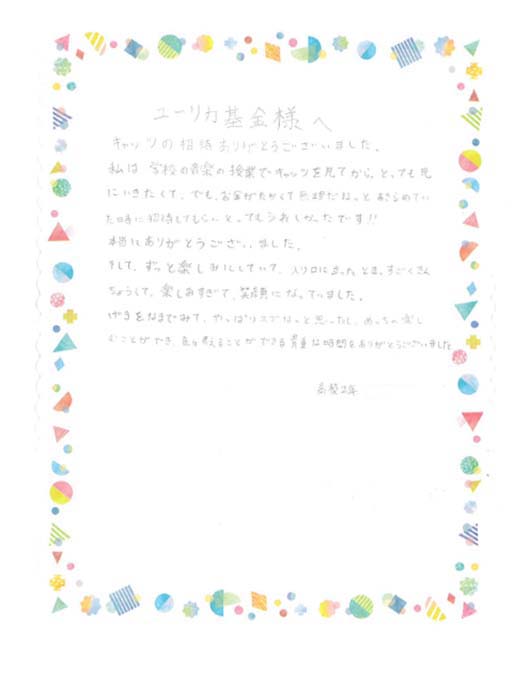 ユーリカ基金様へ
キャッツの招待ありがとうございました。
私は学校の音楽の授業でキャッツを見てから、とっても見
にいきたくて、でも、お金がたかくて無理だなっとあきらめてい
た時に招待してもらい、とってもうれしかったです!!
本当にありがとうございました。
そして、ずっと楽しみにしていて、入り口に立ったとき、すごくきん
ちょうして、楽しみすぎて、笑顔になっていました。
げきをなまでみて、やっぱりスゴなっと思ったし、めっちゃ楽し
むことができ、色々考えることができる貴重な時間をありがとうございました
高校2年